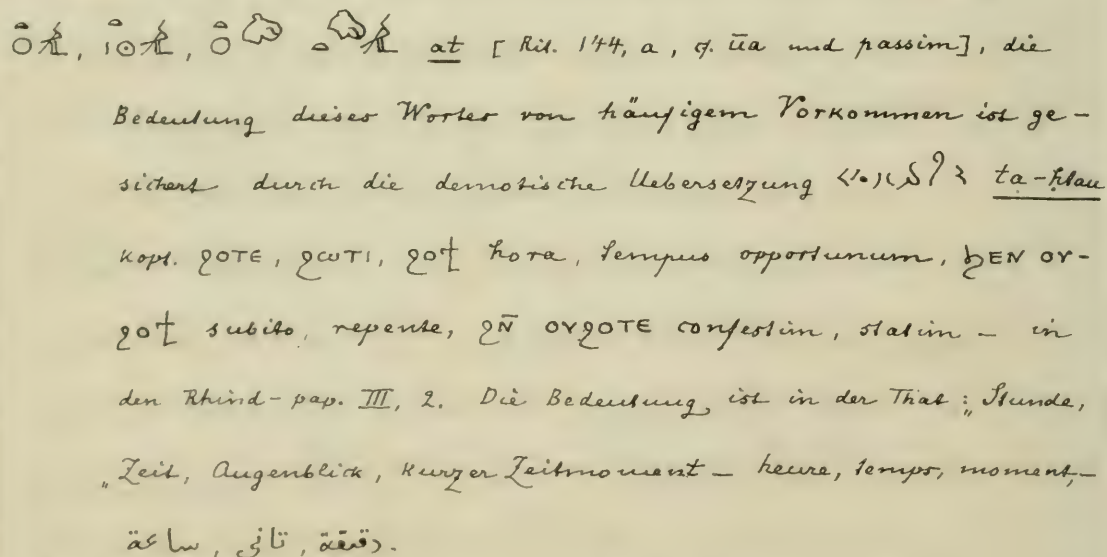 at [Rit. 144, a, cf. ūa und passim], die
Bedeutung dieses Wortes von häufigem Vorkommen ist ge-
sichert durch die demotische Uebersetzung ta-ḥtau
kopt. ϩⲟⲧⲉ, ϩⲱⲧⲓ, ϩⲟϯ hora, tempus opportunum, ϧⲉⲛ ⲟⲩ-
ϩⲟϯ subito, repente, ϩⲛ̄ ⲟⲩϩⲟⲧⲉ confestim, statim – in
den Rhind-pap. III, 2. Die Bedeutung ist in der That: „Stunde,
„Zeit, Augenblick, kurzer Zeitmoment – heure, temps, moment,–
ساعة , تانى , دقيقة.